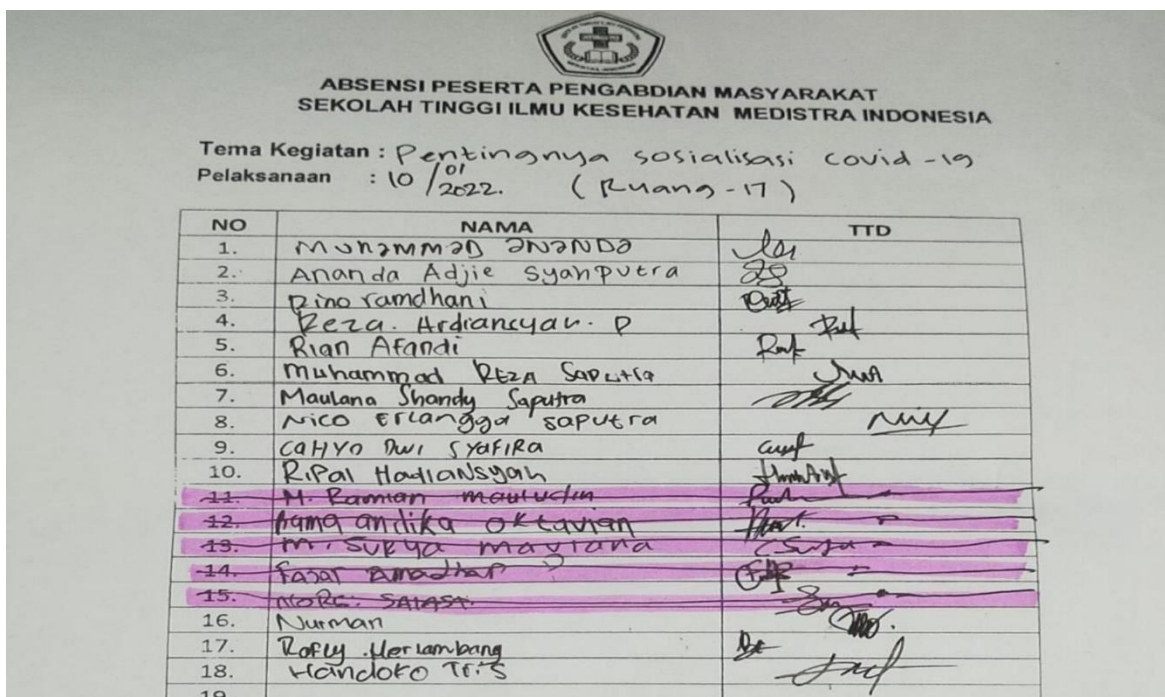 ABSENSI PESERTA PENGABDIAN MASYARAKAT
SEKOLAH TINGGI ILMU KESEHATAN MEDISTRA INDONESIA
Tema Kegiatan : Pentingnya sosialisasi covid-19
Pelaksanaan : 10/01/2022. (Ruang-17)
NO NAMA TTD
1. Muhammad Ananda
2. Ananda Adjie Syahputra
3. Rino ramdhani
4. Reza. Ardiansyah. P
5. Rian Afandi
6. Muhammad REZA Saputra
7. Maulana Shandy Saputra
8. Nico Erlangga saputra
9. CAHYO Dwi SYAFIRA
10. Ripal Hadiansyah
11. M. Ramian mauludin
12. andika oktavian
13. M. SURYA maulana
14. Fajar
15.
16. Nurman
17. Rofly Herlambang
18. Handoko Tri.S
19